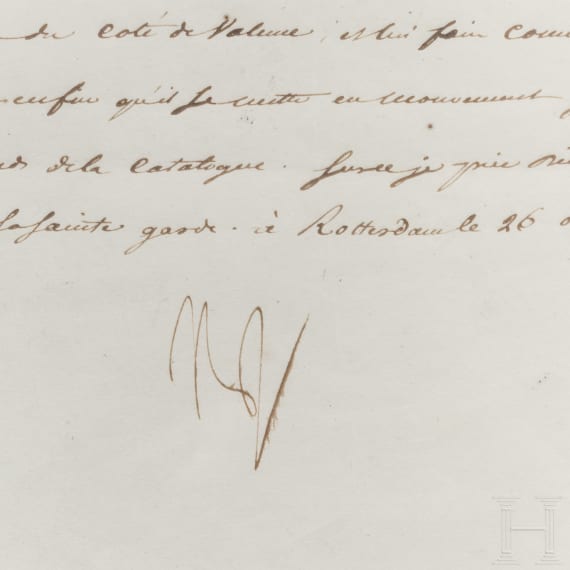 du coté de Valence, et lui faire
enfin qu'il se mette en mouvement
de la Catalogue. Sur ce je prie
Sainte garde. à Rotterdam le 26
Np
H